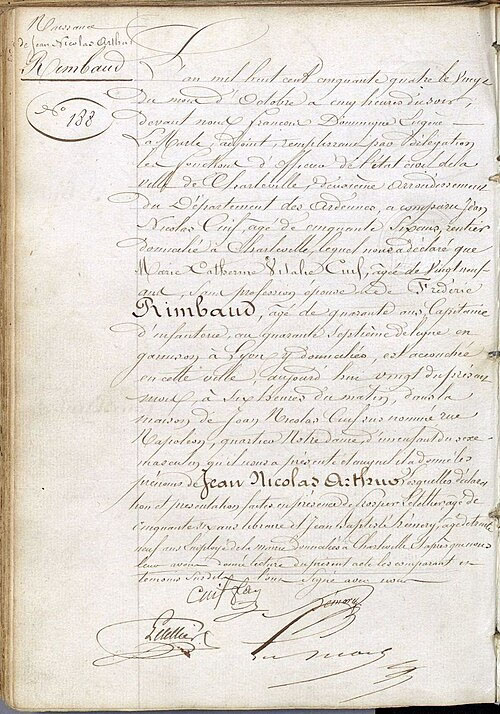 Naissance
de Jean Nicolas Arthur
Rimbaud
N° 188
L'an mil huit cent cinquante quatre le vingt
du mois d'Octobre à cinq heures du soir,
devant nous François Dominique
Le Marle, adjoint, remplissant par délégation
les fonctions d'officier de l'état civil de la
ville de Charleville, deuxième arrondissement
du Département des Ardennes, a comparu Jean
Nicolas Cuif, âgé de cinquante six ans, rentier
domicilié à Charleville, lequel nous a déclaré que
Marie Catherine Vitalie Cuif, âgée de vingt neuf
ans, sans profession épouse de Frédéric
Rimbaud, âgé de quarante ans, Capitaine
d'infanterie, au quarante septième de ligne en
garnison à Lyon y domicilié, est accouchée
en cette ville, aujourd'hui vingt du présent
mois, à six heures du matin, dans la
maison de Jean Nicolas Cuif sus nommé rue
Napoléon, quartier Notre dame d'un enfant du sexe
masculin qu'il nous a présenté et auquel il a donné les
prénoms de Jean Nicolas Arthur, lesquelles déclara
tion et présentation faites en présence de Prosper Letellier âgé de
cinquante ans libraire et Jean Baptiste Hémery, âgé de trente
neuf ans Employé de la mairie domiciliés à Charleville et après que nous
leur avons donné lecture du présent acte les comparant et
témoins susdits l'ont signé avec nous
Cuif
Hémery
Letellier